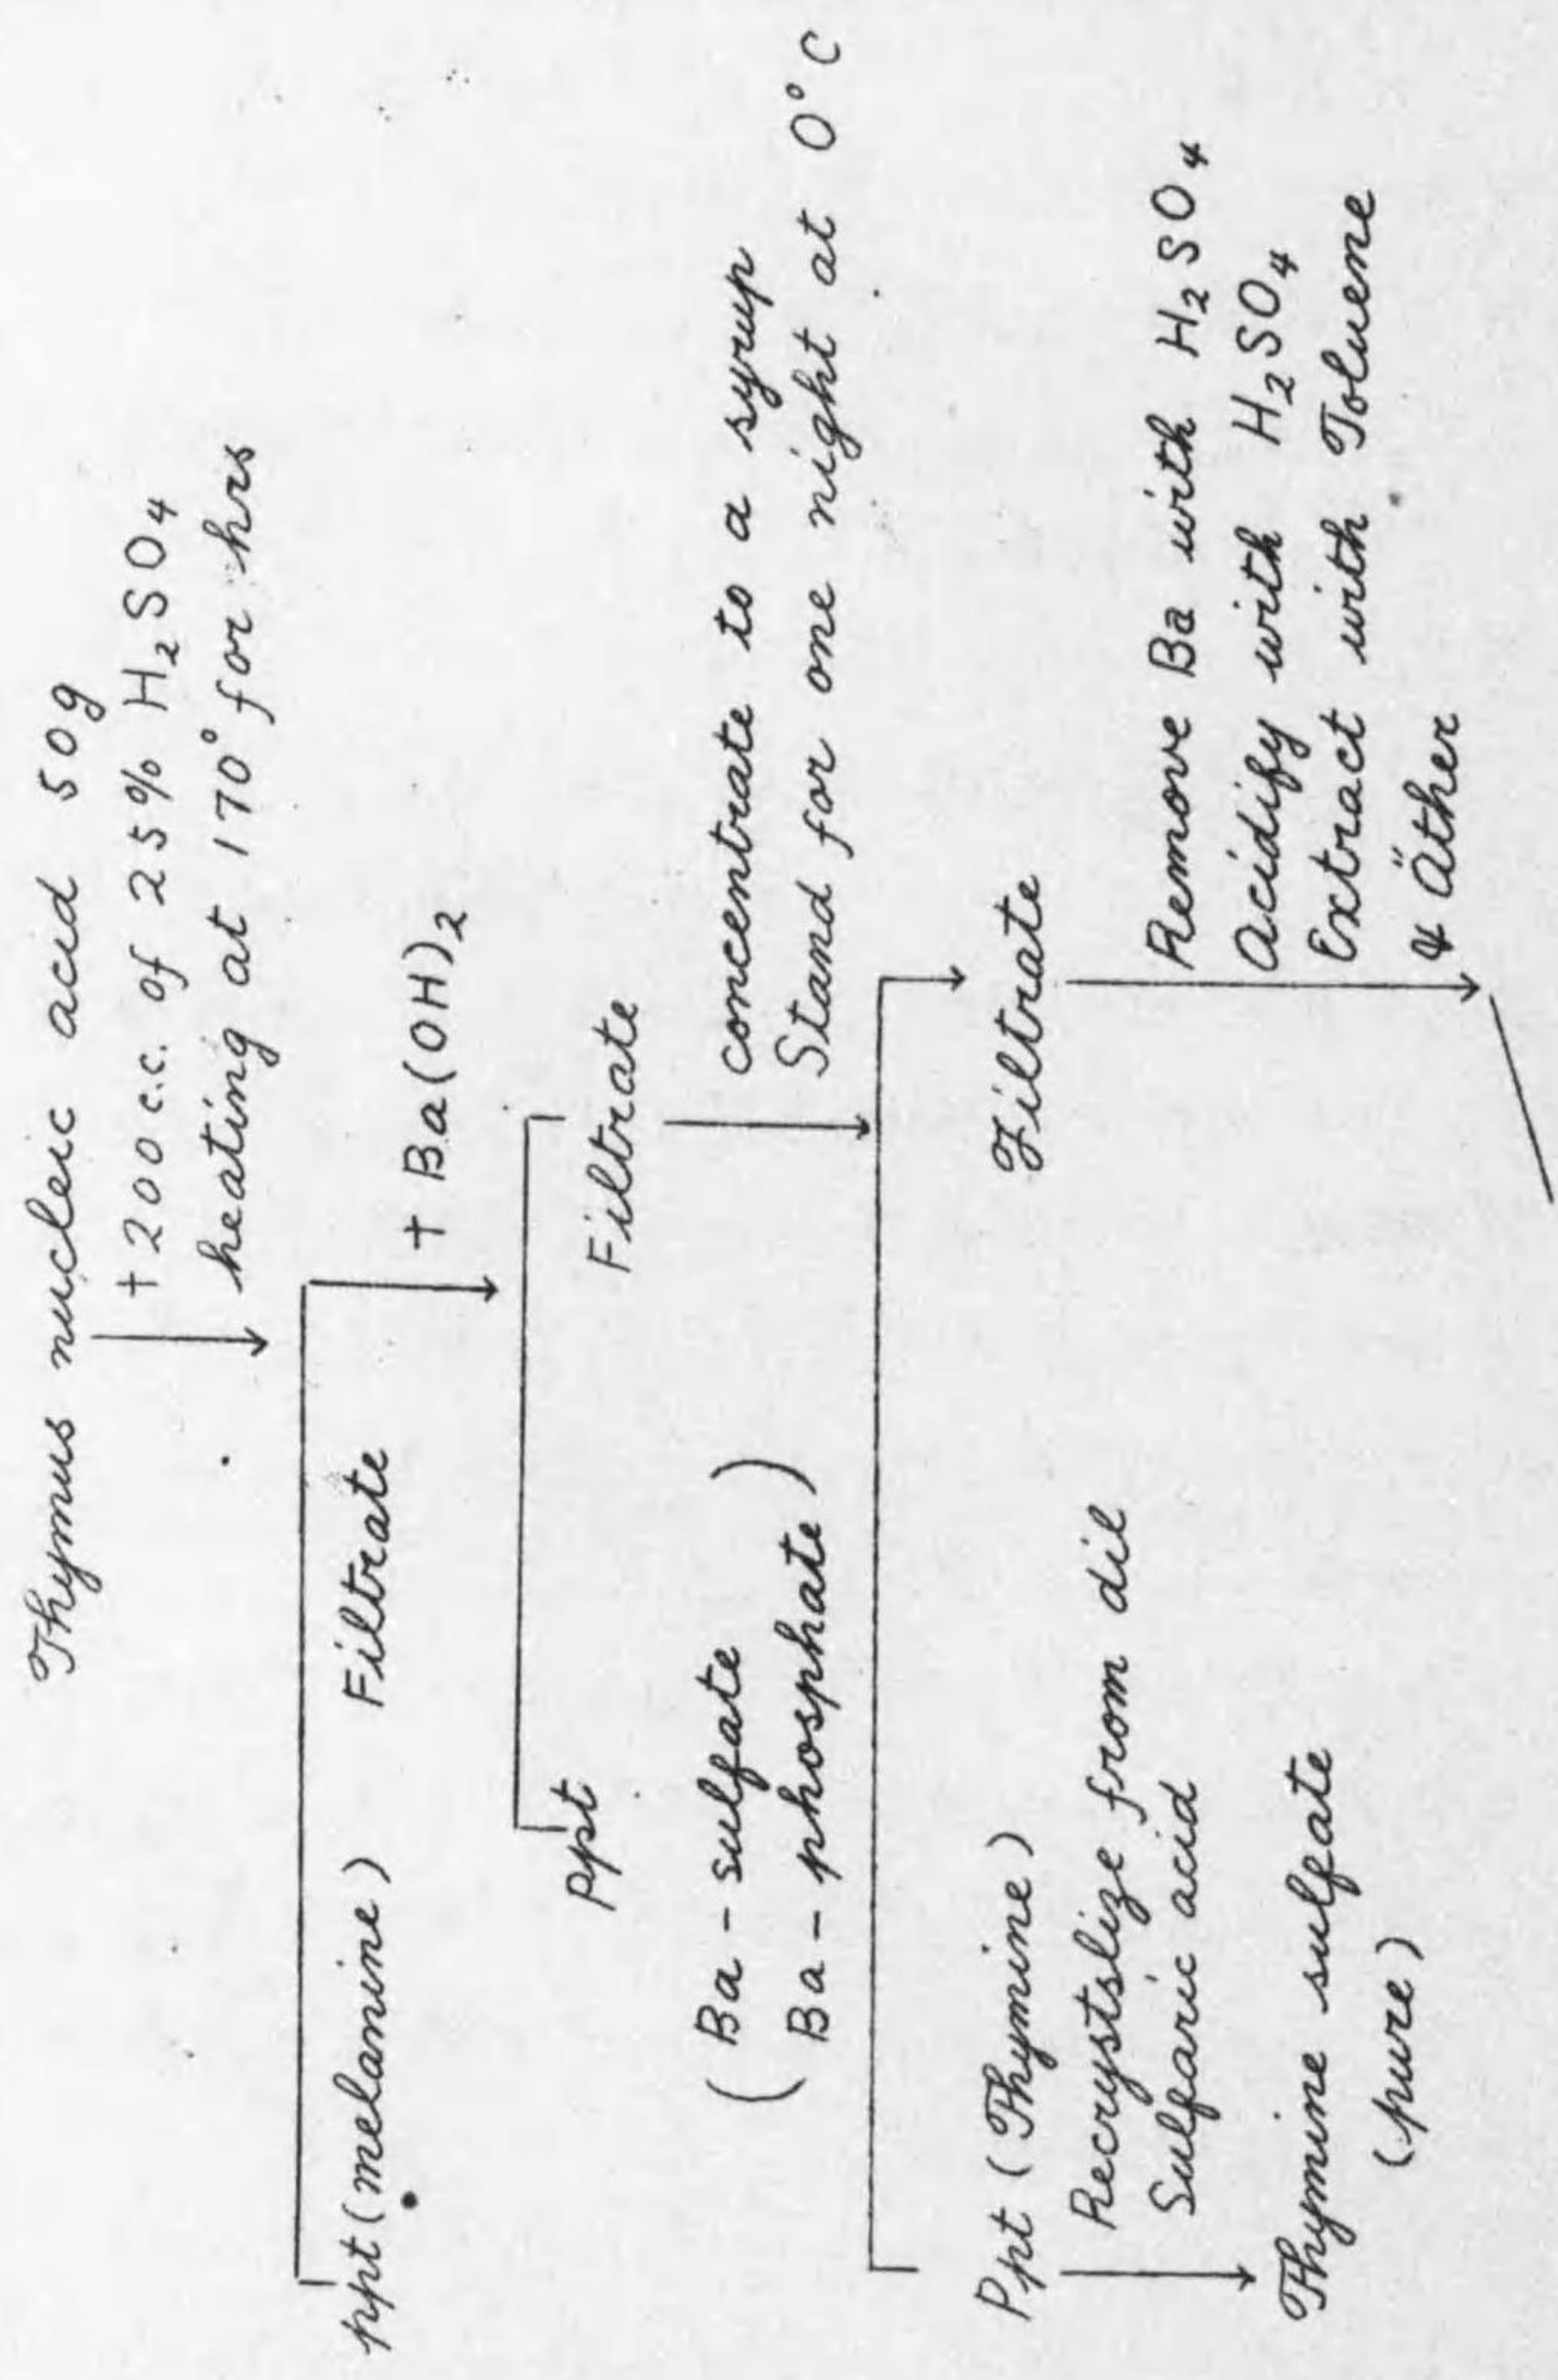 Thymus nucleic acid 50g
+ 200 c.c. of 25% H₂SO₄
heating at 170° for hrs
ppt (melanine) Filtrate
+ Ba(OH)₂
Ppt Filtrate
(Ba-sulfate
Ba-phosphate)
concentrate to a syrup
Stand for one night at 0°C
Ppt (Thymine) Filtrate
Recrystslize from dil
Sulfaric acid
Thymine sulfate
(pure)
Remove Ba with H₂SO₄
Acidify with H₂SO₄
Extract with Toluene
& Äther